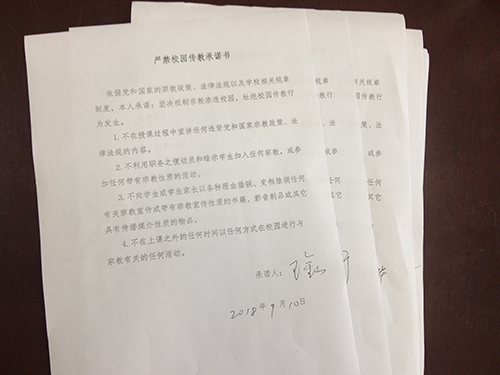 严禁校园传教承诺书
依据党和国家的宗教政策、法律法规以及学校相关规章
制度，本人承诺：坚决抵制宗教渗透校园，杜绝校园传教行
为发生。
1.不在授课过程中宣讲任何违背党和国家宗教政策、法
律法规的内容。
2.不利用职务之便动员和暗示学生加入任何宗教，或参
加任何带有宗教性质的活动。
3.不向学生或学生家长以各种理由推销、变相推销任何
有关宗教宣传或带有宗教宣传性质的书籍、影音制品或其它
具有传播媒介性质的物品。
4.不在上课之外的任何时间以任何方式在校园进行与
宗教有关的任何活动。
承诺人：
2018年9月10日
关规章
传教行
策、法
或参
任何
其它